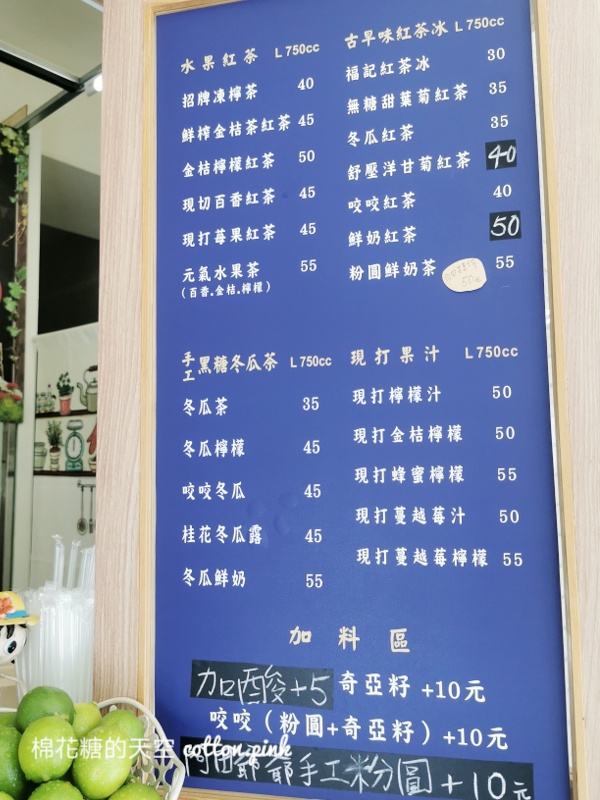 水果紅茶 L750cc
招牌凍檸茶 40
鮮榨金桔茶紅茶 45
金桔檸檬紅茶 50
現切百香紅茶 45
現打莓果紅茶 45
元氣水果茶 55
(百香.金桔.檸檬)
古早味紅茶冰 L750cc
福記紅茶冰 30
無糖甜葉菊紅茶 35
冬瓜紅茶 35
舒壓洋甘菊紅茶 40
咬咬紅茶 40
鮮奶紅茶 50
粉圓鮮奶茶 55
手工黑糖冬瓜茶 L750cc
冬瓜茶 35
冬瓜檸檬 45
咬咬冬瓜 45
桂花冬瓜露 45
冬瓜鮮奶 55
現打果汁 L750cc
現打檸檬汁 50
現打金桔檸檬 50
現打蜂蜜檸檬 55
現打蔓越莓汁 50
現打蔓越莓檸檬 55
加料區
加酸+5 奇亞籽 +10元
咬咬(粉圓+奇亞籽) +10元
阿田爺爺手工粉圓 +10元
棉花糖的天空 cotton.pink